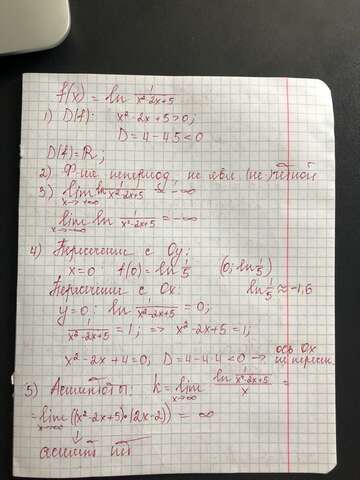 f(x) = ln 1/(x²-2x+5)
1) D(f): x²-2x+5>0;
D=4-4·5<0
D(f)=R;
2) Ф-ция непериод., не явл. (не)чётной
3) lim x→+∞ ln 1/(x²-2x+5) = -∞
lim x→-∞ ln 1/(x²-2x+5) = -∞
4) Пересечение с Oy:
x=0: f(0)=ln 1/5 (0; ln 1/5)
Пересечение с Ox: ln 1/5 ≈ -1,6
y=0: ln 1/(x²-2x+5) = 0;
1/(x²-2x+5) = 1; => x²-2x+5=1;
x²-2x+4=0, D=4-4·4<0 → ось Ox не пересек.
5) Асимптоты: k = lim x→∞ (ln 1/(x²-2x+5))/x =
= lim x→∞ ((x²-2x+5)·(2x-2)) = ∞
↓
асимпт. нет